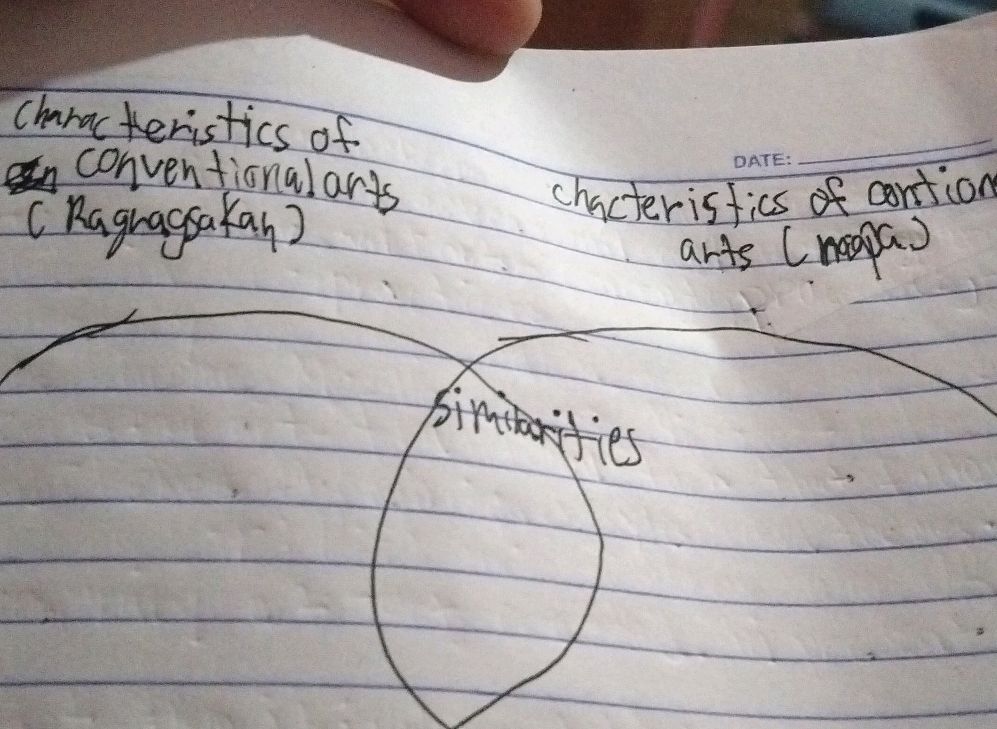 Characteristics of
conventional arts
(Ragragsakan)
DATE:
chacteristics of
arts
similarities